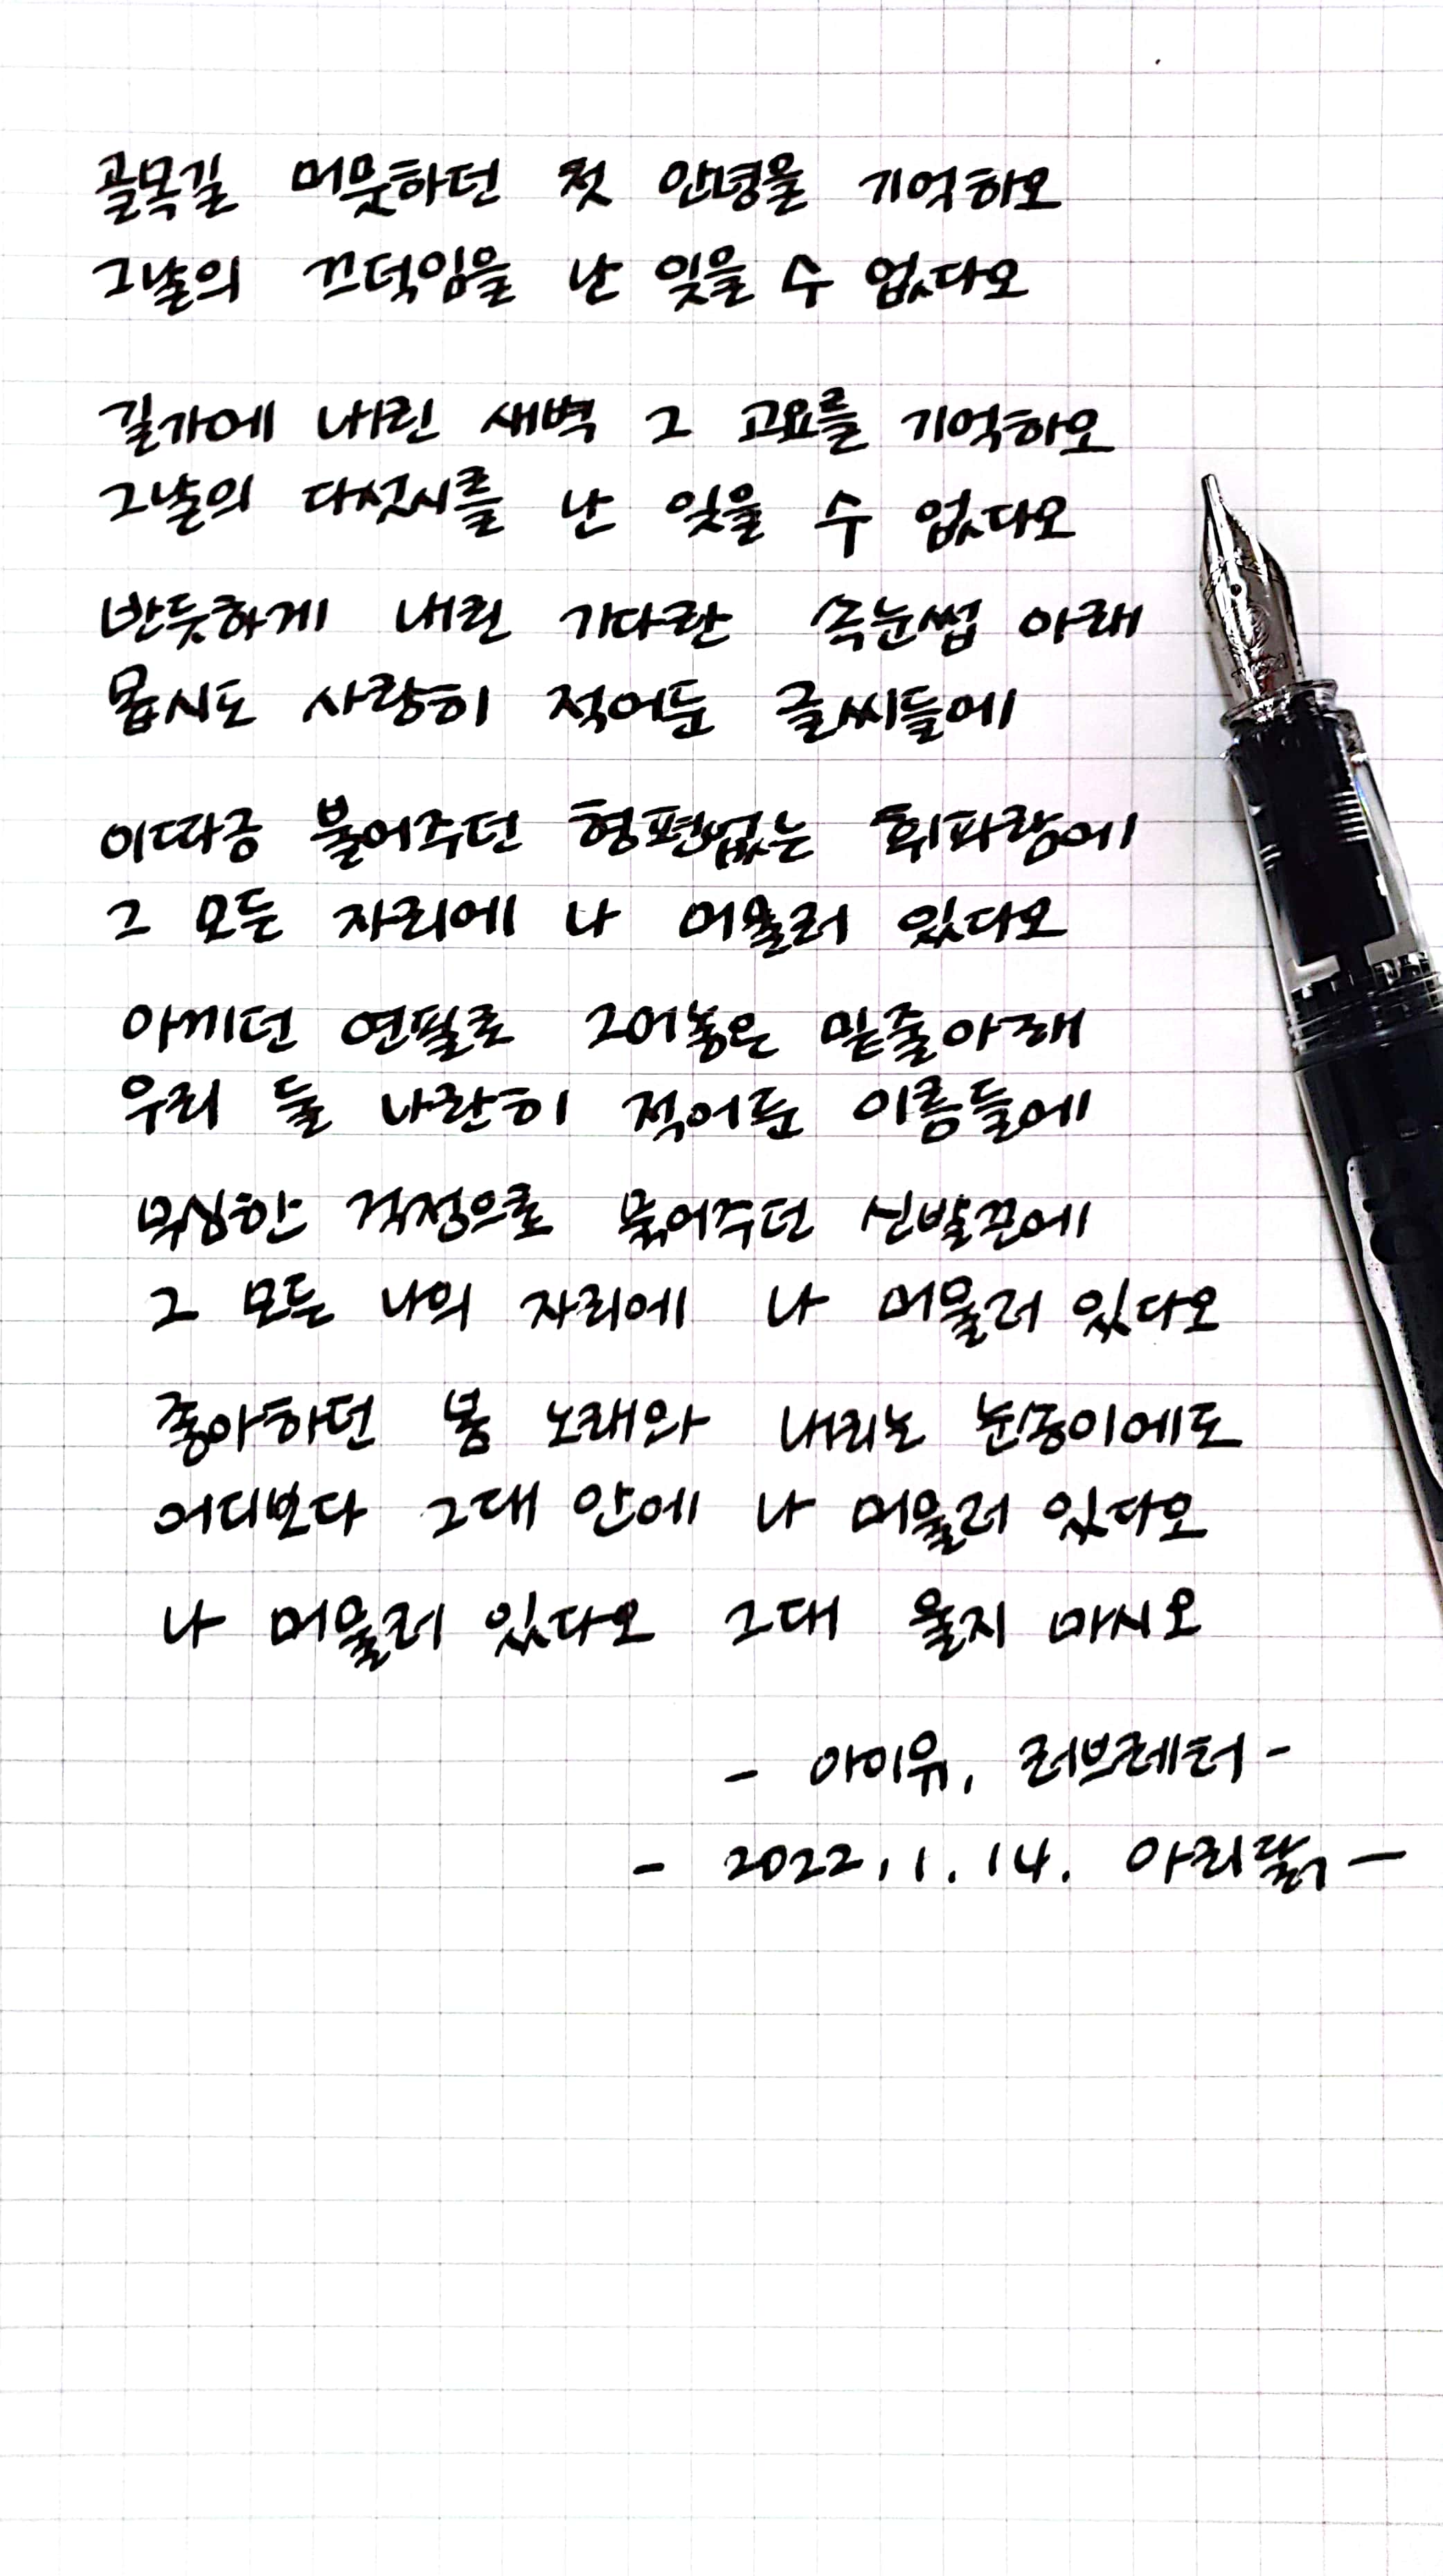 골목길 머뭇하던 첫 안녕을 기억하오
그날의 끄덕임을 난 잊을 수 없다오
길가에 내린 새벽 그 고요를 기억하오
그날의 다섯시를 난 잊을 수 없다오
반듯하게 내린 기다란 속눈썹 아래
몹시도 사랑히 적어둔 글씨들에
이따금 불어주던 형편없는 휘파람에
그 모든 자리에 나 머물러 있다오
아끼던 연필로 그어놓은 밑줄아래
우리 둘 나란히 적어둔 이름들에
무심한 걱정으로 묶어주던 신발끈에
그 모든 나의 자리에 나 머물러 있다오
좋아하던 봄 노래와 내리는 눈송이에도
어디보다 그대 안에 나 머물러 있다오
나 머물러 있다오 그대 울지 마시오
- 아이유, 러브레터 -
- 2022. 1. 14. 아리닭 -